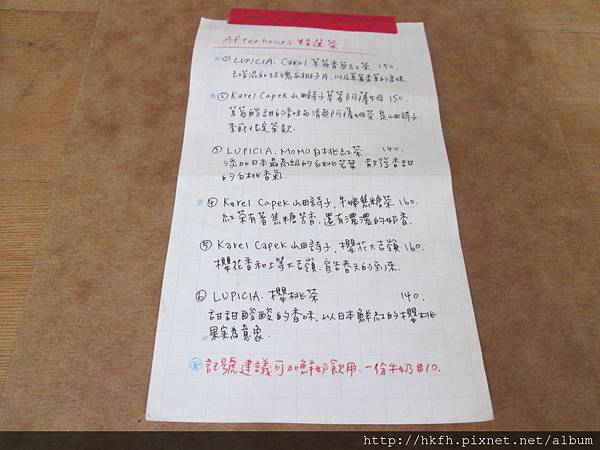 Afterhours 精選茶
※① LUPICIA. Carol 草莓香草紅茶 150.
玫瑰花瓣片,以草莓香草的香味
※② Karel Capek 山田詩子 草莓阿薩姆 150
草莓酸甜的香味與清爽阿薩姆茶,是山田詩子
季節限定茶款.
③ LUPICIA. MOMO 白桃紅茶 140.
添加日本最高級的白桃茗葉.散發香甜
的白桃香氣.
※④ Karel Capek 山田詩子.牛嘟焦糖茶 160.
紅茶有著焦糖苦香,還有濃濃的奶香.
⑤ Karel Capek 山田詩子.櫻花大吉嶺 160.
櫻花香和上等大吉嶺.宣告春天的到來.
⑥ LUPICIA. 櫻桃茶 140.
甜甜酸酸的香味,以日本鮮紅的櫻桃
果実為意象.
※記號建議可加鮮奶飲用.一份牛奶$10.
http://hkfh.pixnet.net/album